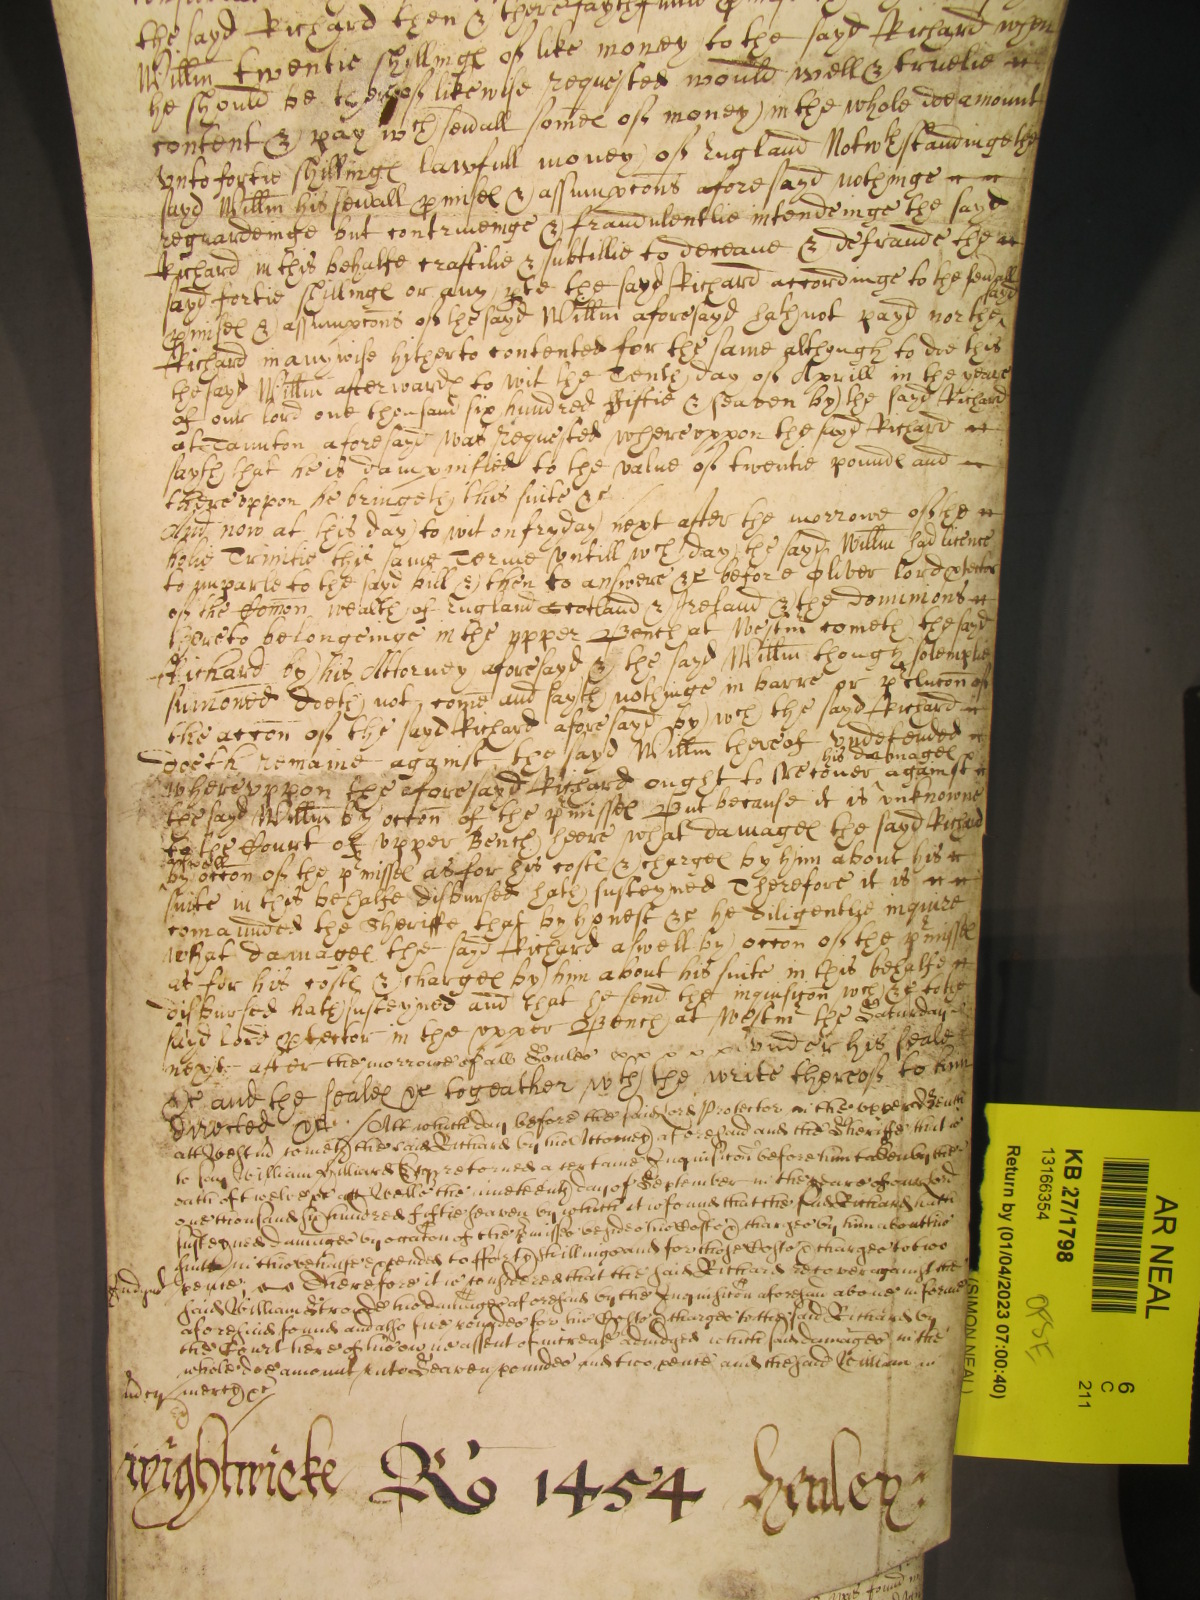 the sayd Richard then & there faythfullie
Willm twentie shillinge of like money to the sayd Richard when
he should be thereof likewise requested would well & trulie
content & pay wch sevall somes of money in the whole doe amount
unto fortie shillinge lawfull money of England Notwthstandinge the
sayd Willm his sevall pmises & assumpcons aforesayd nothinge
reguardeinge but contriveinge & fraudulentlie intendeinge the sayd
Richard in this behalfe craftilie & subtillie to deceave & defraude the
sayd fortie shillinge or any pte the sayd Richard accordinge to the sevall
pmises & assumpcons of the sayd Willm aforesayd hath not payd nor the sayd
Richard in any wise hitherto contented for the same although to doe this
the sayd Willm afterwarde to wit the Tenth day of Aprill in the yeare
of our lord one thousand six hundred fiftie & seaven by the sayd Richard
at Taunton aforesayd was requested whereuppon the sayd Richard
sayth that he is dampnified to the value of twentie pounde and
thereuppon he bringeth this suite &c
And now at this day to wit on fryday next after the morrowe of the
holie Trinitie this same Terme untill wch day the sayd Willm had licence
to imparle to the sayd bill & then to answere &c before Oliver lord ptector
of the Comon wealth of England Scotland & Ireland & the dominions
thereto belongeinge in the upper Bench at Westm cometh the sayd
Richard by his Attorney aforesayd & the sayd Willm though solemplie
sumoned doeth not come and sayth nothinge in barre or pclucon of
the accon of the sayd Richard aforesayd by wch the sayd Richard
doeth remaine against the sayd Willm thereof undefended
whereuppon the aforesayd Richard ought to recover his damages against
the sayd Willm by occon of the pmisses But because it is unknowne
to the Court of upper Bench heere what damages the sayd Richard
aswell by occon of the pmisses as for his coste & charges by him about his
suite in this behalfe disbursed hath susteyned Therefore it is
comaunded the Sheriffe that by honest &c he diligentlye inquire
what damages the sayd Richard aswell by occon of the pmisses
as for his coste & charges by him about his suite in this behalfe
disbursed hath susteyned and that he send the inquisicon wch &c to the
sayd lord ptector in the upper Bench at Westm the Saturday
next after the morrowe of all Soules under his seale
&c and the seales &c togeather wth the write thereof to him
directed &c. Att which day before the said lord Protector in the upper Bench
att Westm cometh the said Richard by his Attorney aforesaid and the Sheriffe that is
to say William Hilliard Esqr retorned a certaine Inquisicon before him taken by the
oath of twelve &c att Wells the nineteenth day of September in the yeare of our lord
one thousand six hundred fiftie seaven by which it is found that the said Richard hath
susteyned damages by occation of the pmisses besides his Costs & charges by him about his
suite in this behalfe expended to fforty shillings and for those Costs & charges to two
pence Therefore it is considered that the said Richard recover against the
said William Strowde his damages aforesaid by the Inquisicon aforesaid above in forme
aforesaid found and alsoe five poundes for his Costs & charges to the said Richard by
the Court here of his owne assent of increase adiudged which said damages in the
whole doe amount unto Seaven poundes and two pence and the said William in
mercy &c
Wightwicke Ro 1454 Henley
AR NEAL
6
C
211
KB 27/1798
13166354
ORSE
Return by (01/04/2023 07:00:40)
(SIMON NEAL)